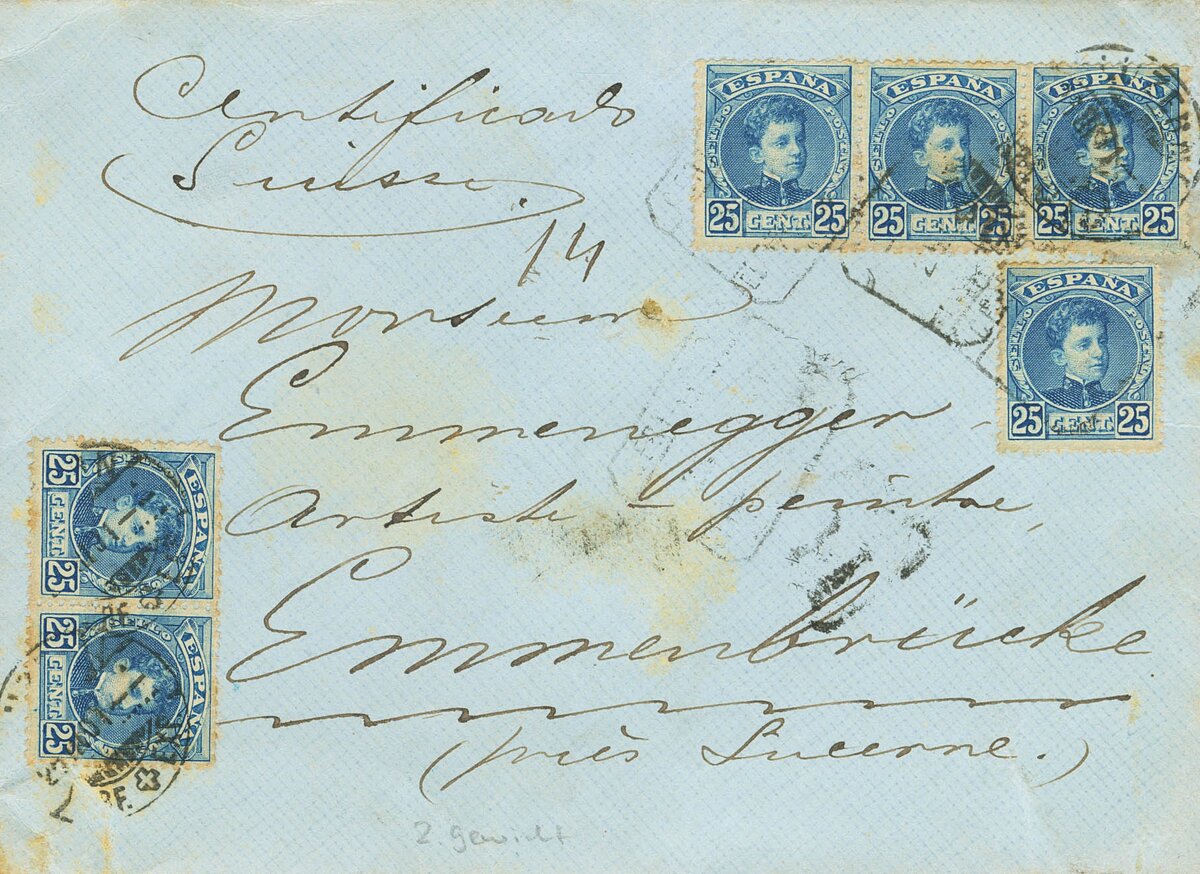 Certificado
Suisse
14
Monsieur
Emmenegger
Artiste-peintre,
Emmenbrücke
(près Lucerne.)
2. Gewicht
ESPAÑA
SELLO POSTAL
25 CENT. 25
ESPAÑA
SELLO POSTAL
25 CENT. 25
ESPAÑA
SELLO POSTAL
25 CENT. 25
ESPAÑA
SELLO POSTAL
25 CENT. 25
ESPAÑA
25 CENT. 25
ESPAÑA
SELLO
25 CENT. 25